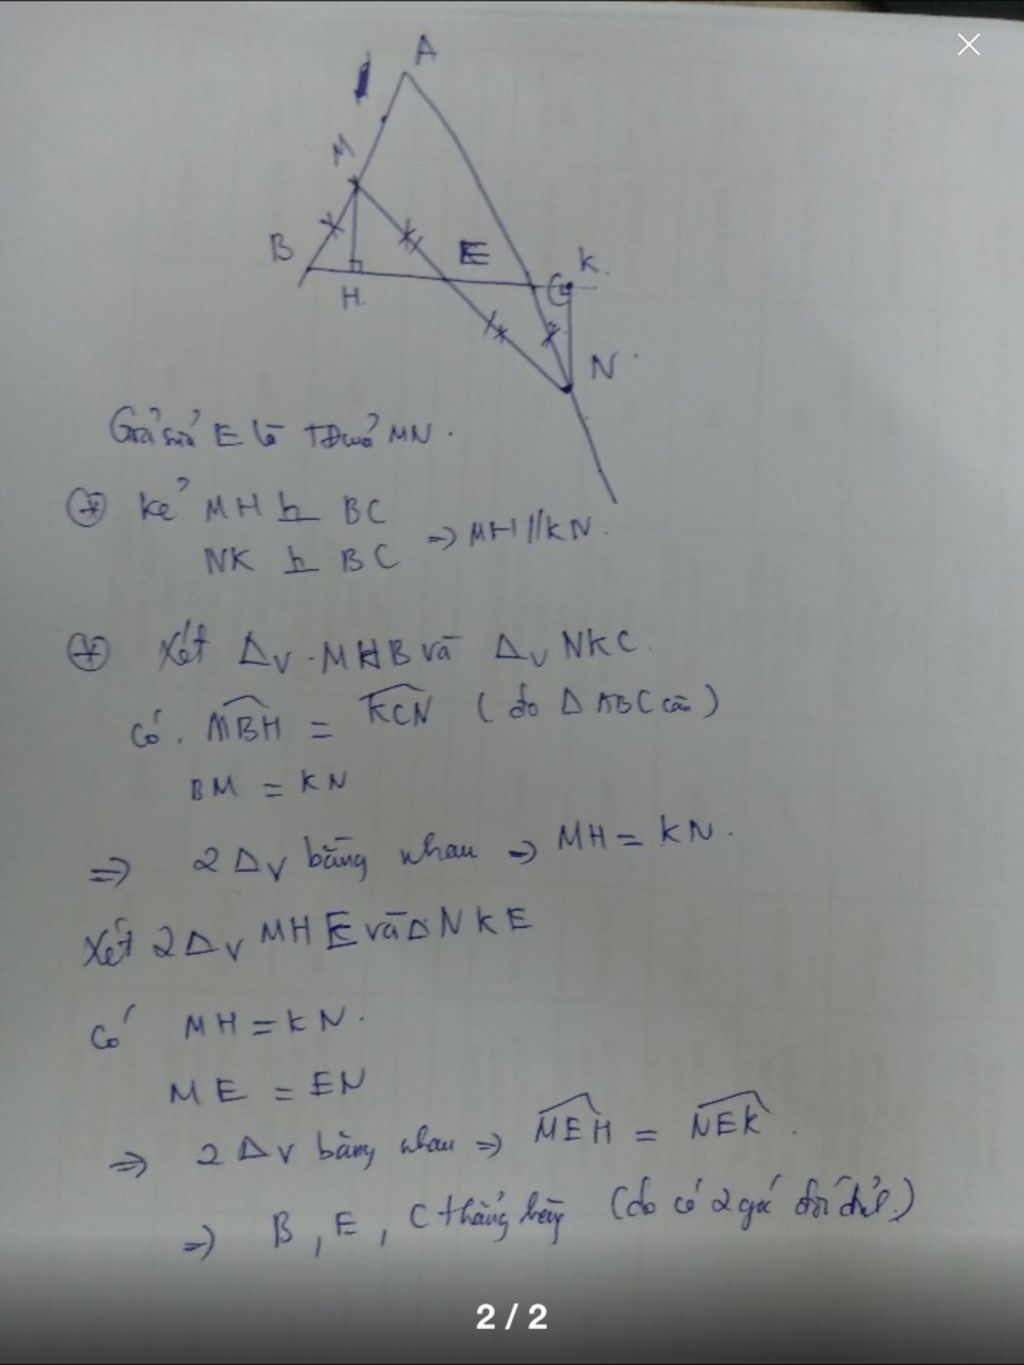 A
M
B
E
K.
H.
C
N
Giả sử E là TĐ của MN.
* Kẻ MH ⊥ BC
NK ⊥ BC
=> MH // KN.
* Xét Δv MHB và Δv NKC.
Có. MBH = KCN (do Δ ABC cân)
BM = KN
=> 2 Δv bằng nhau => MH = KN.
Xét 2 Δv MHE và Δ NKE
Có MH = KN.
ME = EN
=> 2 Δv bằng nhau => MEH = NEK.
=> B, E, C thẳng hàng (do có 2 góc đối đỉnh.)
2 / 2